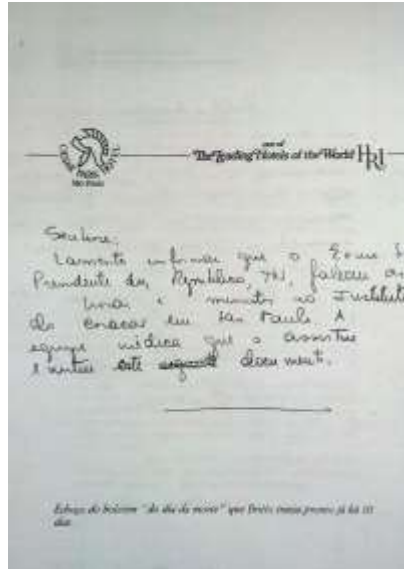 CAESAR PARK
São Paulo
one of
The Leading Hotels of the World HRI
Senhores,
Lamento informar que o Exmo S
Presidente da República, TN, faleceu
horas e minutos no Instituto
do Coração em São Paulo. A
equipe médica que o assistiu
emitiu este documento.
Esboço do boletim "do dia da morte" que Britto trazia pronto já há 10
dias